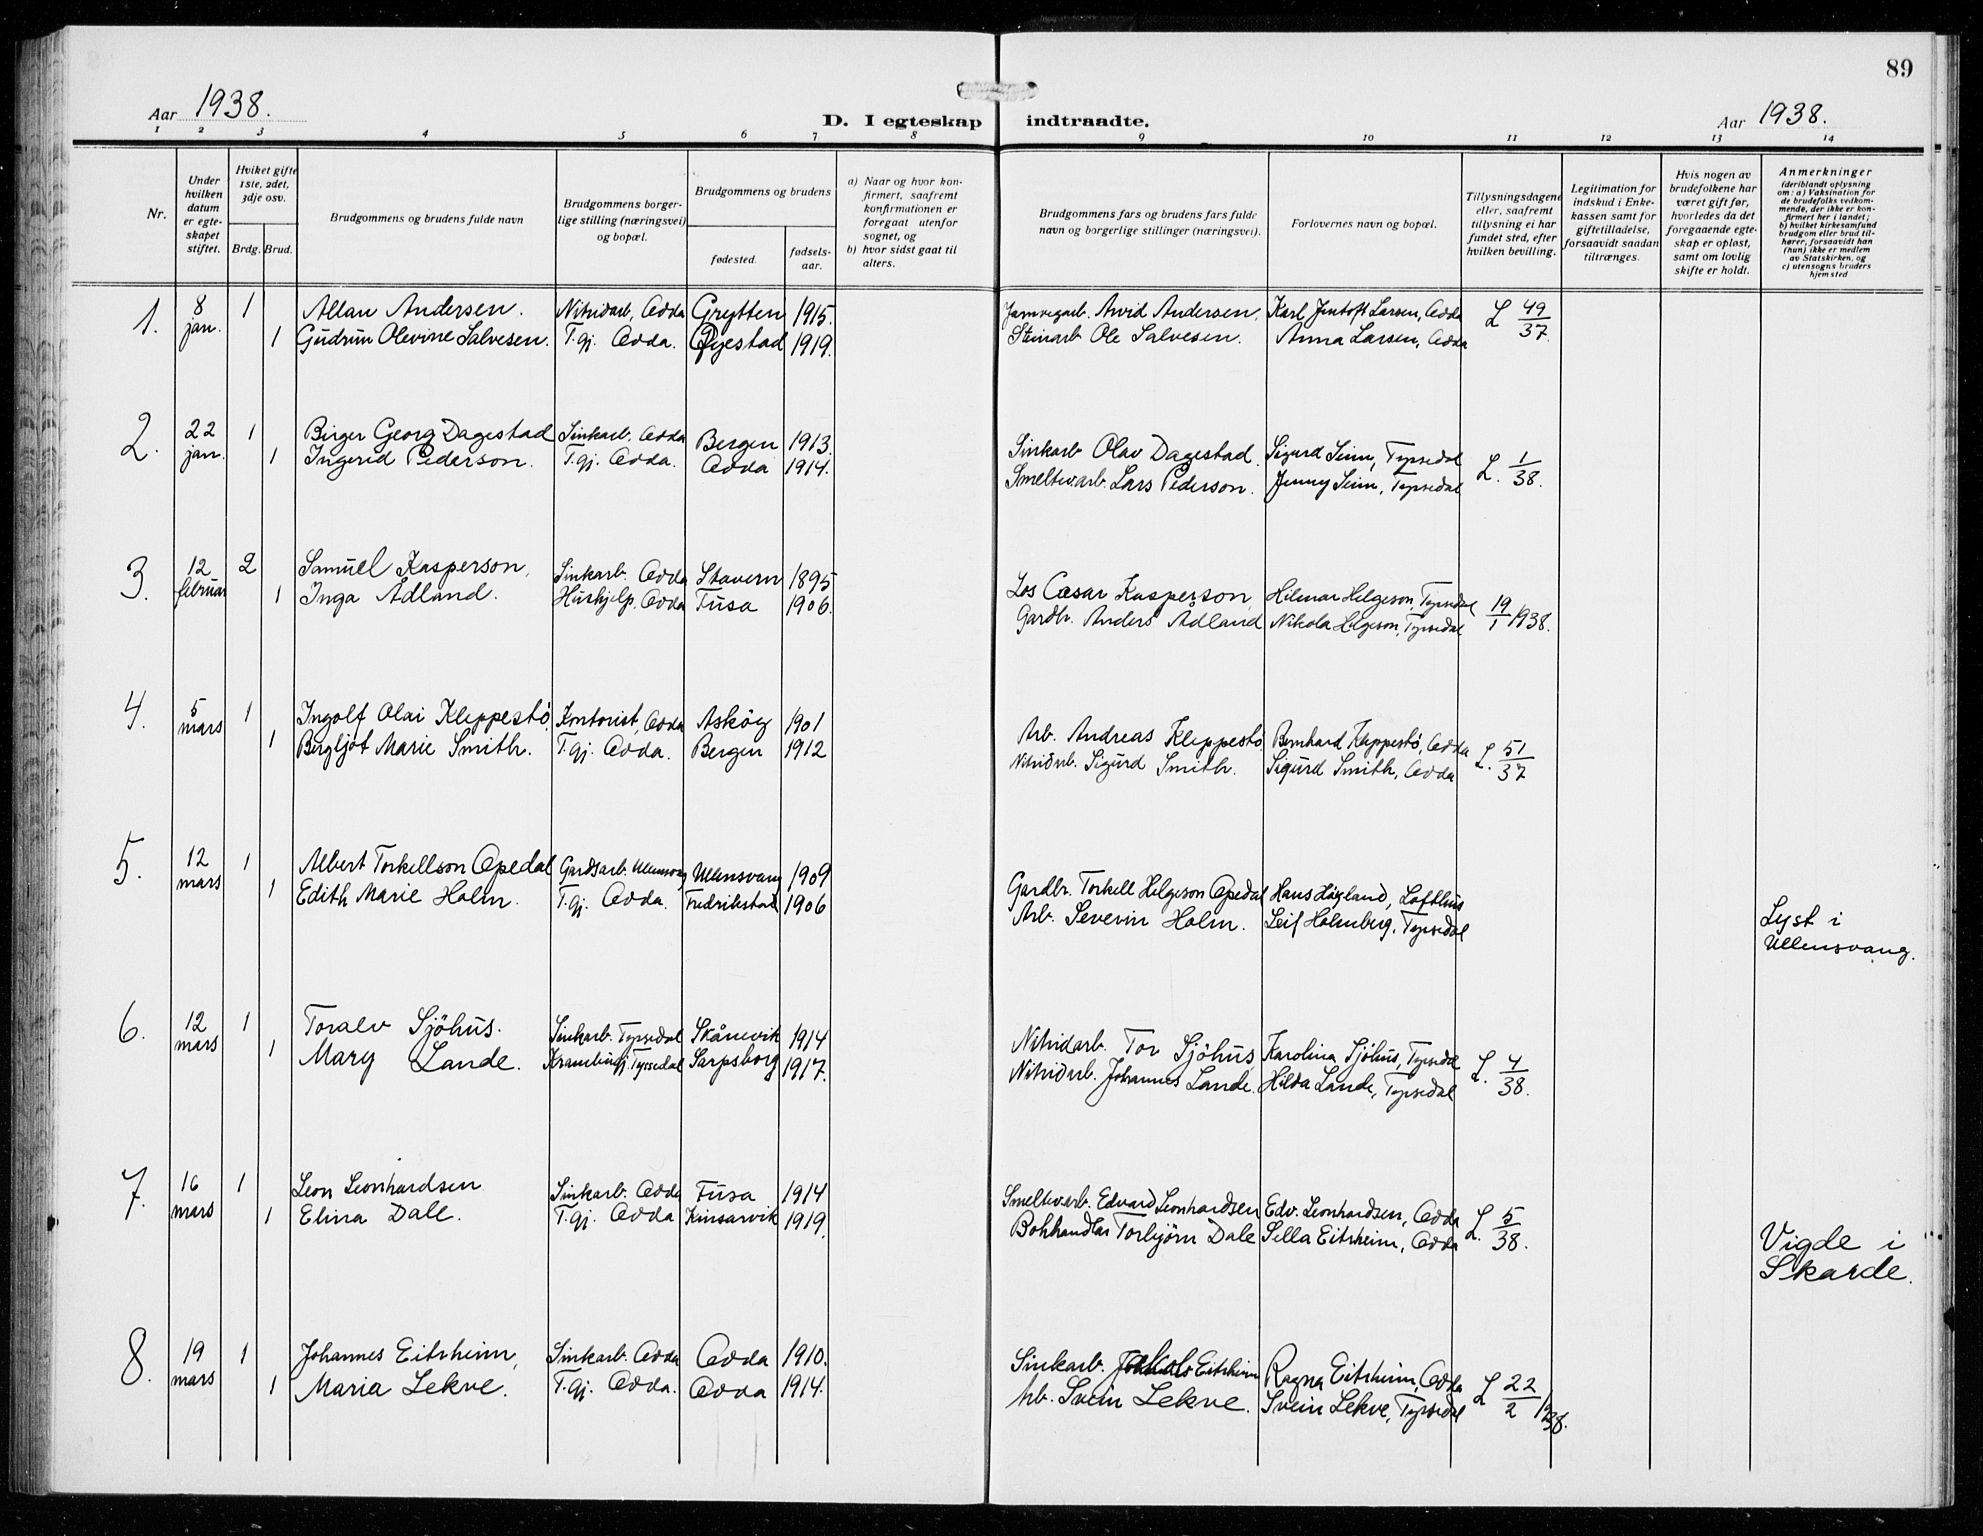 89
Aar 1938.
D. I egteskap indtraadte.
Aar 1938.
1 2 3 4 5 6 7 8 9 10 11 12 13 14
Nr.
Under hvilken datum er egteskapet stiftet.
Hviket gifte 1ste, 2det, 3dje osv.
Brdg. Brud.
Brudgommens og brudens fulde navn
Brudgommens borgerlige stilling (næringsvei) og bopæl.
Brudgommens og brudens
fødested. fødselsaar.
a) Naar og hvor konfirmert, saafremt konfirmationen er foregaaet utenfor sognet, og
b) hvor sidst gaat til alters.
Brudgommens fars og brudens fars fulde navn og borgerlige stillinger (næringsvei).
Forlovernes navn og bopæl.
Tillysningsdagene eller, saafremt tillysning ei har fundet sted, efter hvilken bevilling.
Legitimation for indskud i Enkekassen samt for giftetilladelse, forsaavidt saadan tiltrænges.
Hvis nogen av brudefolkene har været gift før, hvorledes da det foregaaende egteskap er opløst, samt om lovlig skifte er holdt.
Anmerkninger (deriblandt oplysning om: a) Vaksination for de brudefolks vedkommende, der ikke er konfirmert her i landet; b) hvilket kirkesamfund brudgom eller brud tilhører, forsaavidt han (hun) ikke er medlem av Statskirken, og c) utensogns bruders hjemsted
1. 8 jan. 1 Allan Andersen. Nitridarb, Odda Grytten 1915. Jarnvegarb. Arvid Andersen, Karl Jentoft Larsen, Odda L 49/37.
1 Gudrun Olevine Salvesen. T.gj. Odda. Øyestad 1919. Steinarb Ole Salvesen. Anna Larsen, Odda
2. 22 jan. 1 Birger Georg Dagestad Sinkarb, Odda Bergen 1913. Sinkarb Olav Dagestad. Sigurd Seim, Tyssedal L. 1/38.
1 Ingerid Pederson. T.gj. Odda. Odda 1914. Smeltevarb. Lars Pederson. Jenny Seim, Tyssedal
3. 12 februar 2 Samuel Kasperson, Sinkarb. Odda Stavern 1895 Los Cæsar Kasperson, Hilmar Helgeson, Tyssedal 19/1 1938.
1 Inga Ådland. Hushjelp, Odda Fusa 1906. Gardbr. Anders Ådland Nikola Helgeson, Tyssedal
4. 5 mars 1 Ingolf Olai Kleppestö, Kontorist, Odda Asköy 1901 Arb. Andreas Kleppestö Bernhard Kleppestö, Odda L. 51/37
1 Bergljot Marie Smith. T.gj. Odda. Bergen 1912 Nitridarb. Sigurd Smith. Sigurd Smith, Odda
5. 12 mars 1 Albert Torkellson Opedal Gardsarb. Ullensvang Ullensvang 1909 Gardbr. Torkell Helgeson Opedal Hans Högland, Lofthus
1 Edith Marie Holm. T.gj. Odda. Fredrikstad 1906 Arb. Severin Holm. Leif Holmberg, Tyssedal
Lyst i
Ullensvang.
6. 12 mars 1 Toralv Sjöhus. Sinkarb. Tyssedal Skånevik 1914 Nitridarb. Tor Sjöhus, Karolina Sjöhus, Tyssedal L. 4/38.
1 Mary Lande. Tyssedal Sarpsborg 1917. Nitridarb. Johannes Lande. Hilda Lande, Tyssedal
7. 16 mars 1 Leon Leonhardsen Sinkarb. Odda Fusa 1914 Smeltevarb. Edvard Leonhardsen Edv. Leonhardsen, Odda L. 5/38.
1 Elina Dale. T.gj. Odda Kinsarvik 1919. Bokhandlar Torbjörn Dale Sella Eitrheim, Odda
Vigde i
Skarde.
8. 19 mars 1 Johannes Eitrheim, Sinkarb. Odda Odda 1910. Sinkarb. Eitrheim Ragna Eitrheim, Odda L 22/2 1938.
1 Maria Lekve. T.gj. Odda. Odda 1914. Arb. Svein Lekve. Svein Lekve, Tyssedal